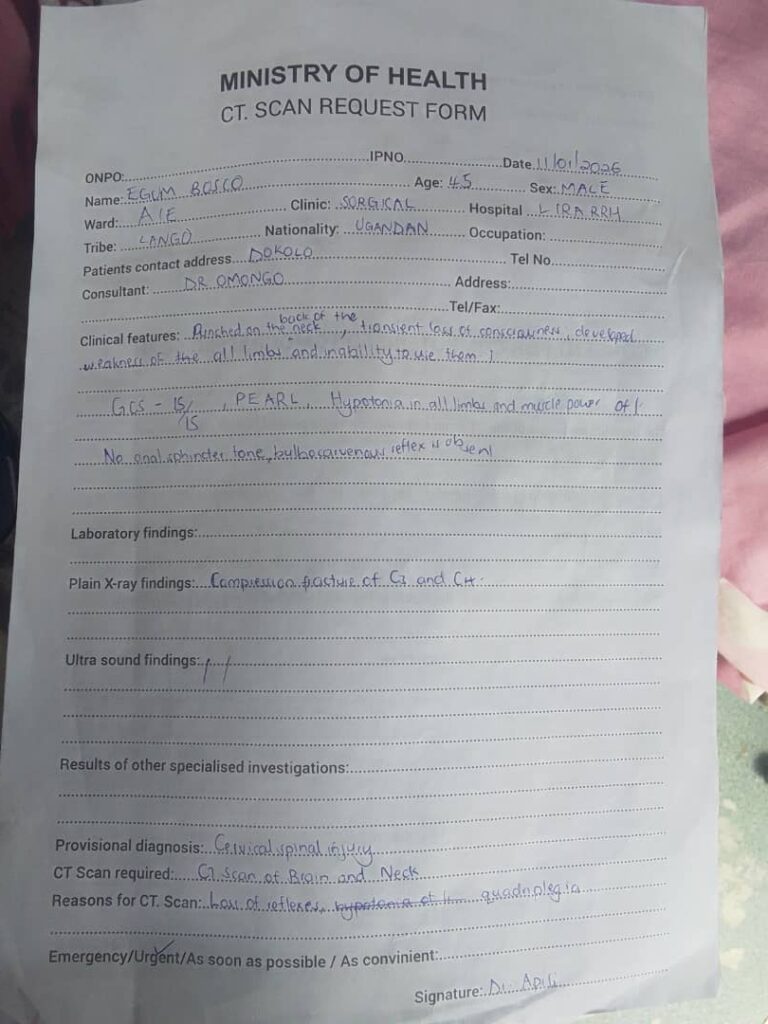 MINISTRY OF HEALTH
CT. SCAN REQUEST FORM
ONPO:..........IPNO..........Date 11/01/2026
Name: EGUM BOSCO Age: 45 Sex: MALE
Ward: AIE Clinic: SORGICAL Hospital LIRA RRH
Tribe: LANGO Nationality: UGANDAN Occupation:
Patients contact address DOKOLO Tel No
Consultant: DR OMONGO Address:
Tel/Fax:
back of the
Clinical features: Punched on the neck, transient loss of consciousness, developed
weakness of the all limbs and inability to use them
GCS - 15/15, PEARL, Hypotonia in all limbs and muscle power of 1
No anal sphincter tone, bulbocarvenous reflex is absent
Laboratory findings:
Plain X-ray findings: Compression fracture of C3 and C4.
Ultra sound findings:
Results of other specialised investigations:
Provisional diagnosis: Cervical spinal injury
CT Scan required: CT scan of Brain and Neck
Reasons for CT. Scan: Loss of reflexes, hypotonia of quadriplegia
Emergency/Urgent/As soon as possible / As convinient:
Signature: Dr. Apili